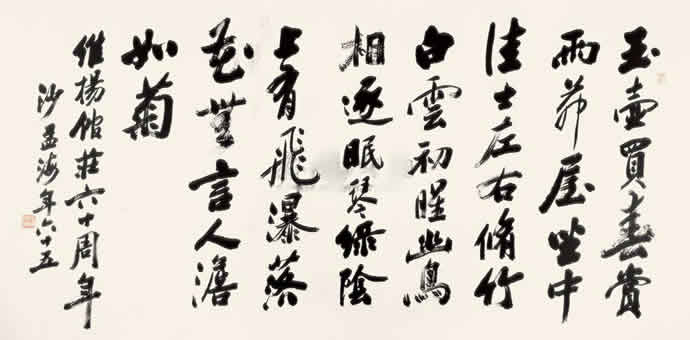 玉壺買春賞
雨茆屋坐中
佳士左右脩竹
白雲初暒幽鳥
相逐眠琴綠陰
上有飛瀑落
花無言人澹
如菊
維揚館莊六十周年
沙孟海年六十五